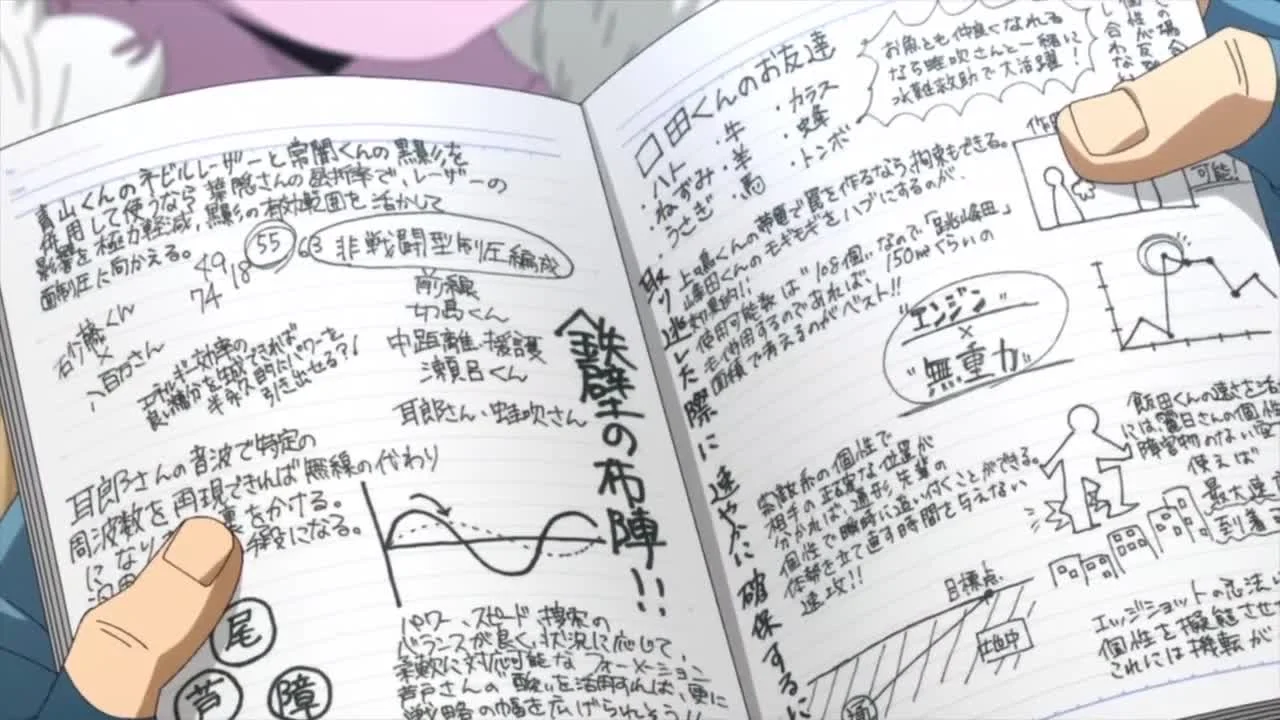 青山くんのネビルレーザーと常闇くんの黒影を
併用して使うなら葉隠さんの屈折率で、レーザーの
影響を極力軽減、黒影の有効範囲を活かして
面制圧に向かえる。
49
18
55
63
74
非戦闘型制圧編成
前線
切島くん
中距離・援護
瀬呂くん
耳郎さん・蛙吹さん
砂藤くん
×
八百万さん
エネルギー効率の
良い糖分を生成できれば
半永久的だたパワーを
引き出せる?!
鉄壁の布陣!!
耳郎さんの音波で特定の
周波数を再現できれば無線の代わり
になり
をかける。
尾
芦
障
パワー、スピード、捜索の
バランスが良く、状況に応じて、
柔軟に対応可能なフォーメーション
芦戸さんの酸を活用すれば、更に
戦略の幅を広げられそう!!
口田くんのお友達
・ハト
・ねずみ
・うさぎ
・牛
・羊
・馬
・カラス
・蜂
・トンボ
お魚とも仲良くなれる
なら蛙吹さんと一緒に
水難救助で大活躍!
可能!
上鳴くんの帯電で罠を作るなら、拘束もできる。
峰田くんのモギモギをハブにするのが、
効果的!!
使用可能数は"108個"なので
も使用するのであれば、150㎡ぐらいの
面積で考えるのがベスト!!
取り逃した際に速やかに確保するに
"エンジン"
×
"無重力"
飯田くんの速さを活
には麗日さんの個性
障害物のない空
使えば
最大速
到着
索敵系の個性で
相手の正確な位置が
分かれば、造形、先輩の
個性で瞬時に追い付くことができる。
体勢を立て直す時間を与えない
速攻!!
目標点
エッジショットの忍法
個性を擬態させ
これには機転が